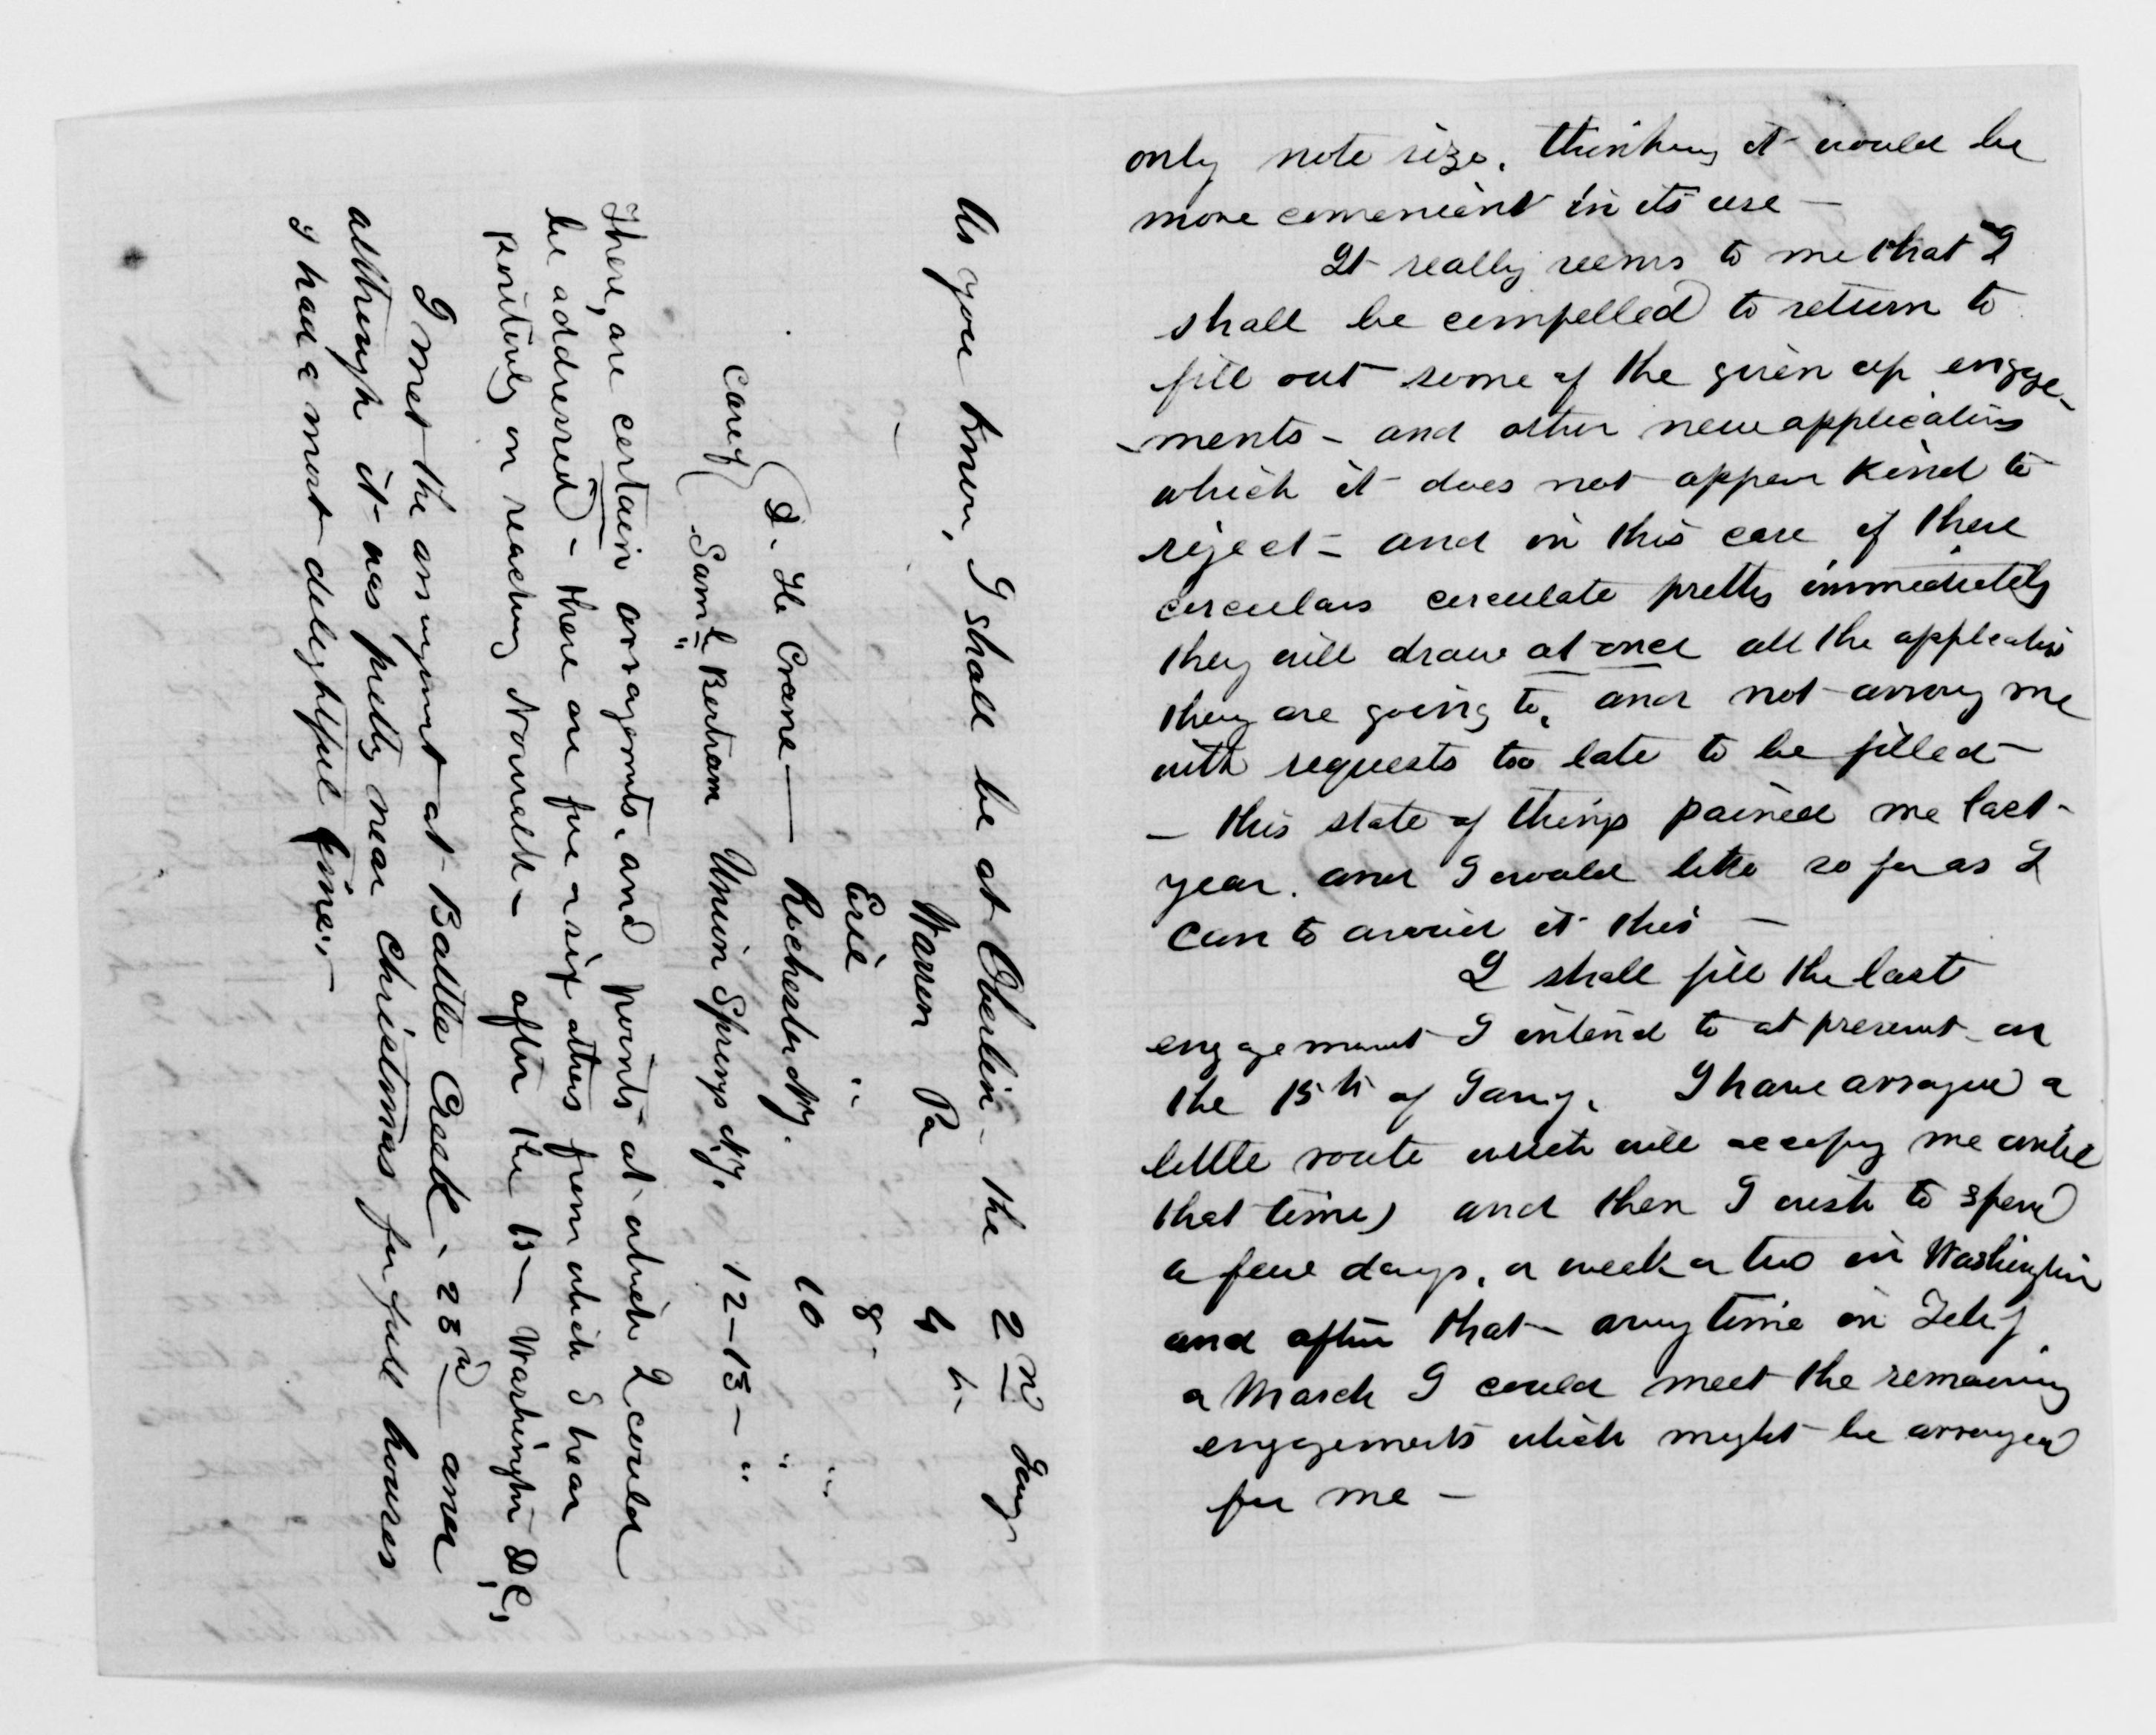 only note size, thinking it would be
more convenient in its use —
It really seems to me that I
shall be compelled to return to
fill out some of the given up engage-
-ments - and other new applications
which it does not appear kind to
reject - and in this case if these
circulars circulate pretty immediately
they will draw at once all the applications
they are going to, and not annoy me
with requests too late to be filled -
- this state of things pained me last
year, and I would like so far as I
can to avoid it this —
I shall fill the last
engagement I intend to at present on
the 15th of Jany. I have arranged a
little route which will occupy me until
that time, and then I wish to spend
a few days, a week or two in Washington
and after that - any time in Feb'y
or March I could meet the remaining
engagements which might be arranged
for me -
As you know, I shall be at Oberlin - the 2nd Jany
Warren Pa 6th
Erie " 8 "
Care of { D. He Crane — Rochester Ny. 10 "
Saml Bertram Union Springs Ny. 12-13 - "
There, are certain arragments, and points at which I could
be addressed - there are five or six others from which I hear
positively on reaching Norwalk - after the 15 - Washington D.C,
I met the arragment at Battle Creek - 23rd and
although it was pretty near Christmas for full houses
I had a most delightful time -